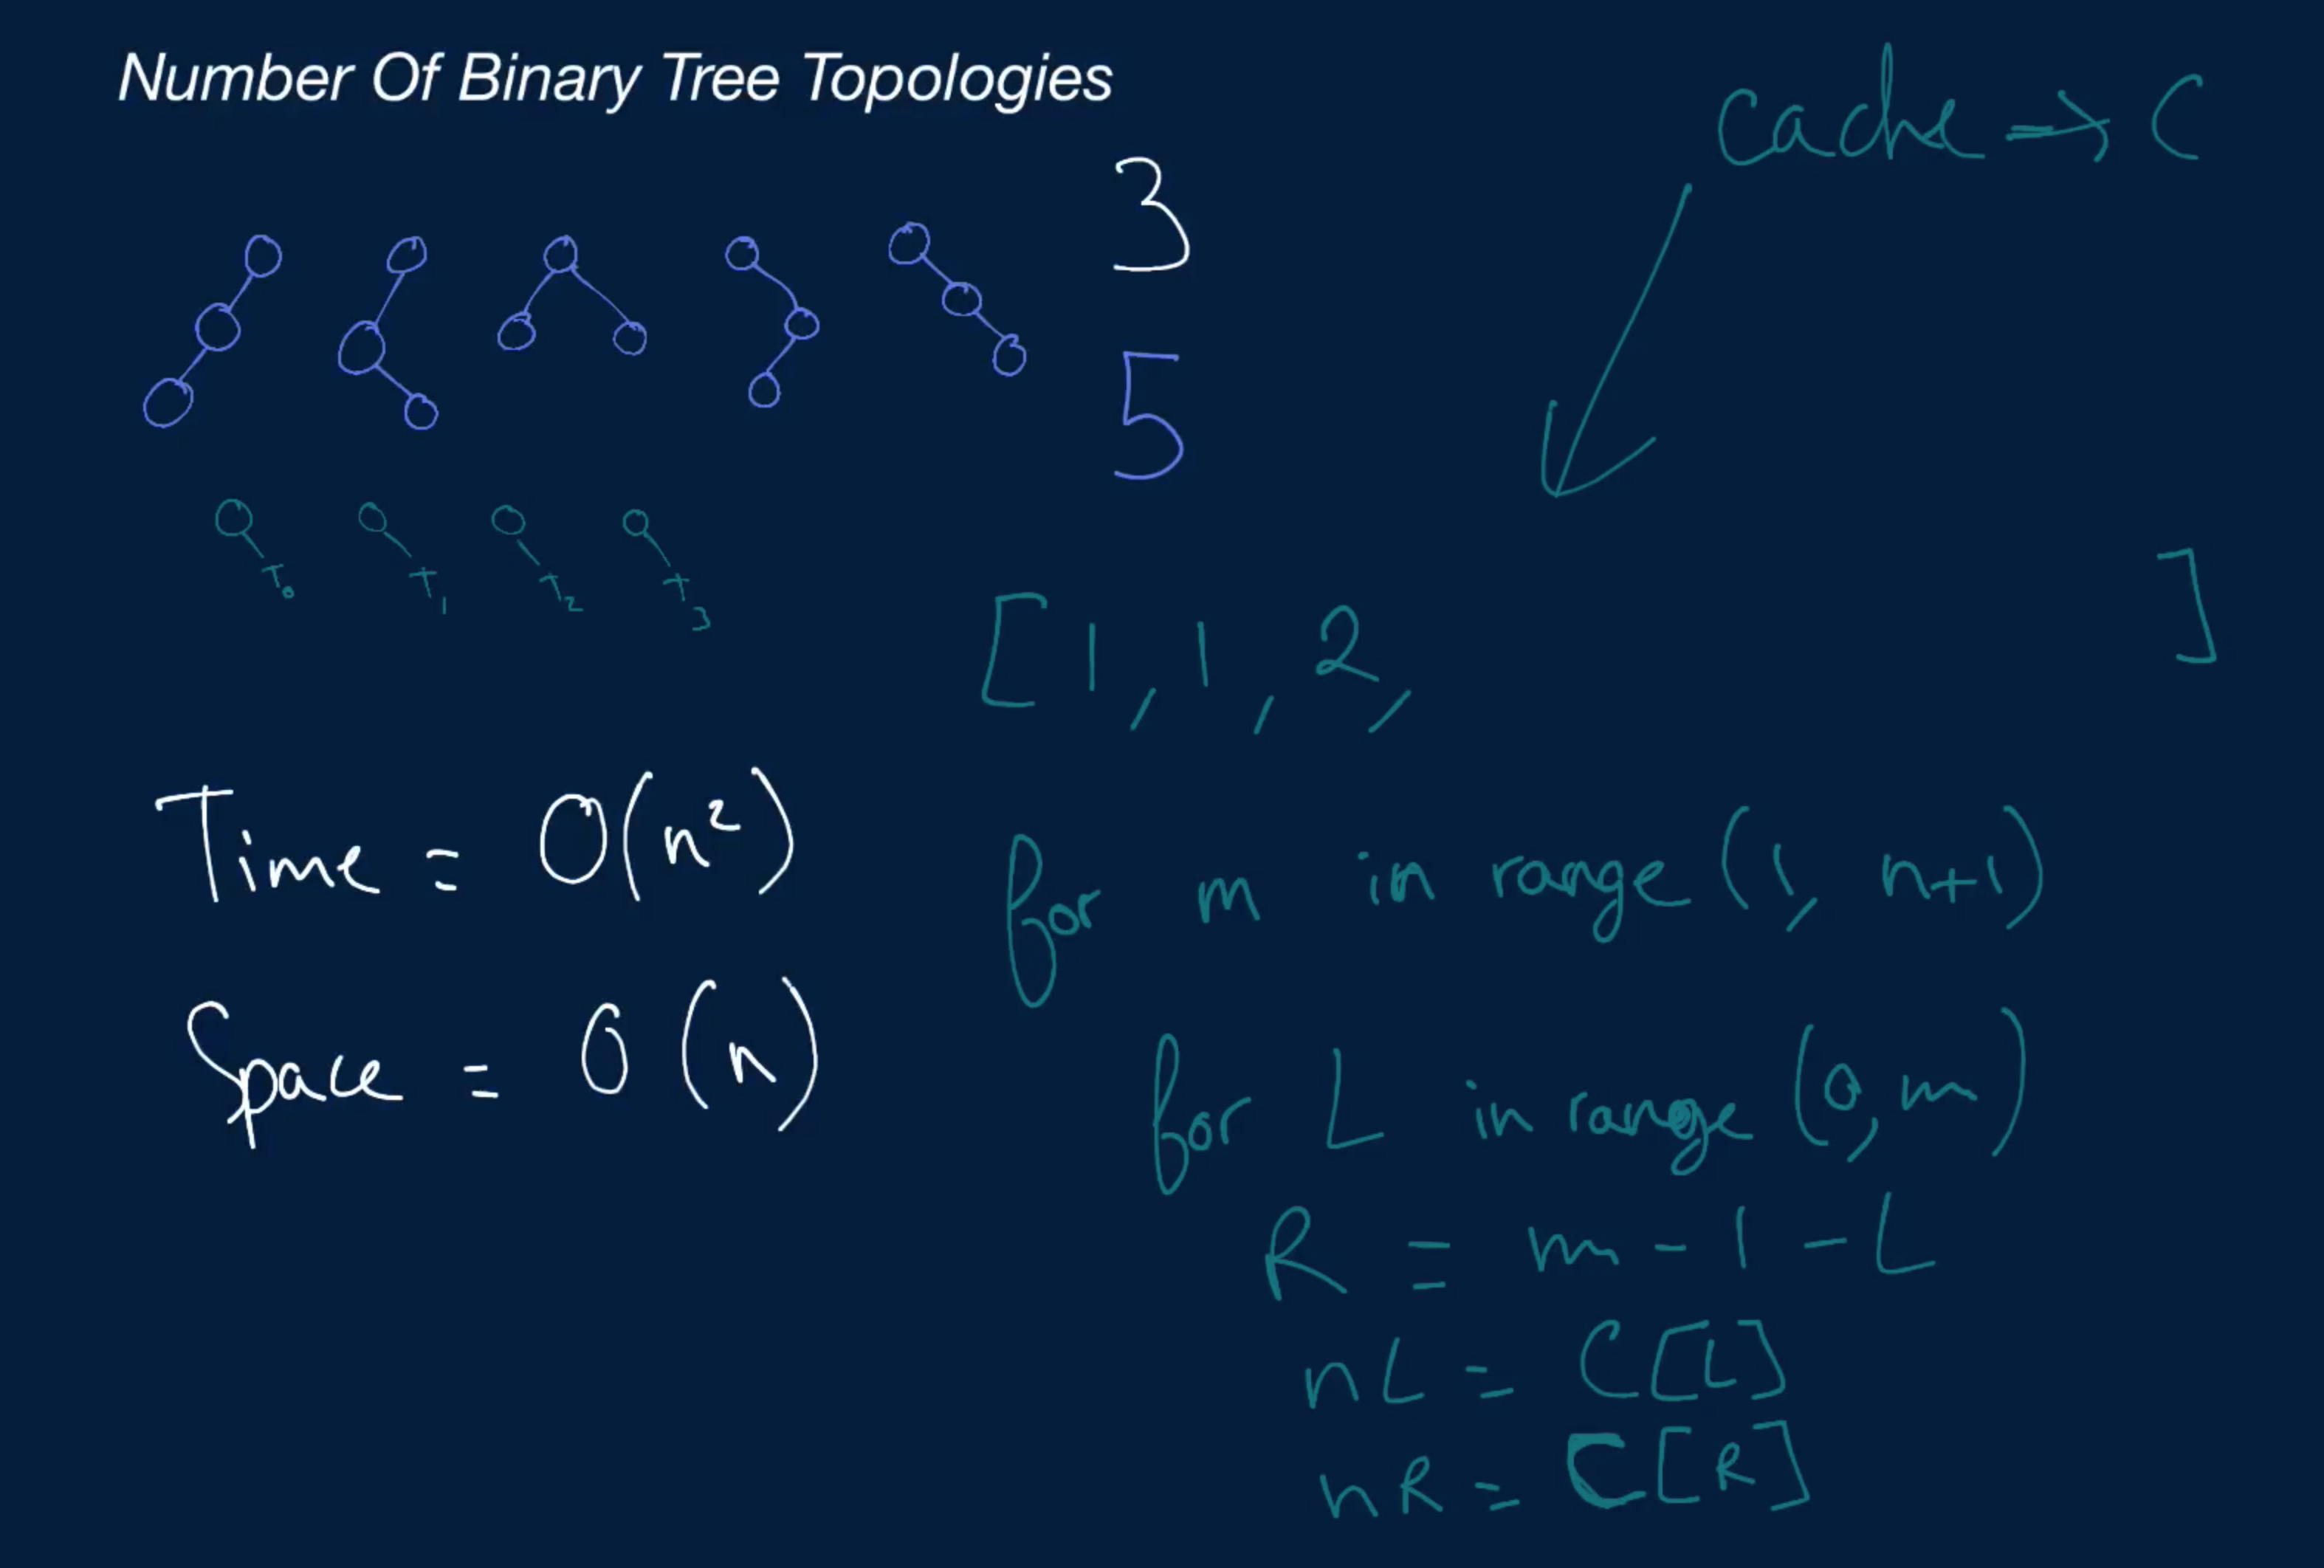 Number Of Binary Tree Topologies
cache → C
3
5
T0 T1 T2 T3
[1, 1, 2, ]
Time = O(n²)
Space = O(n)
for m in range (1, n+1)
for L in range (0, m)
R = m - 1 - L
nL = C[L]
nR = C[R]